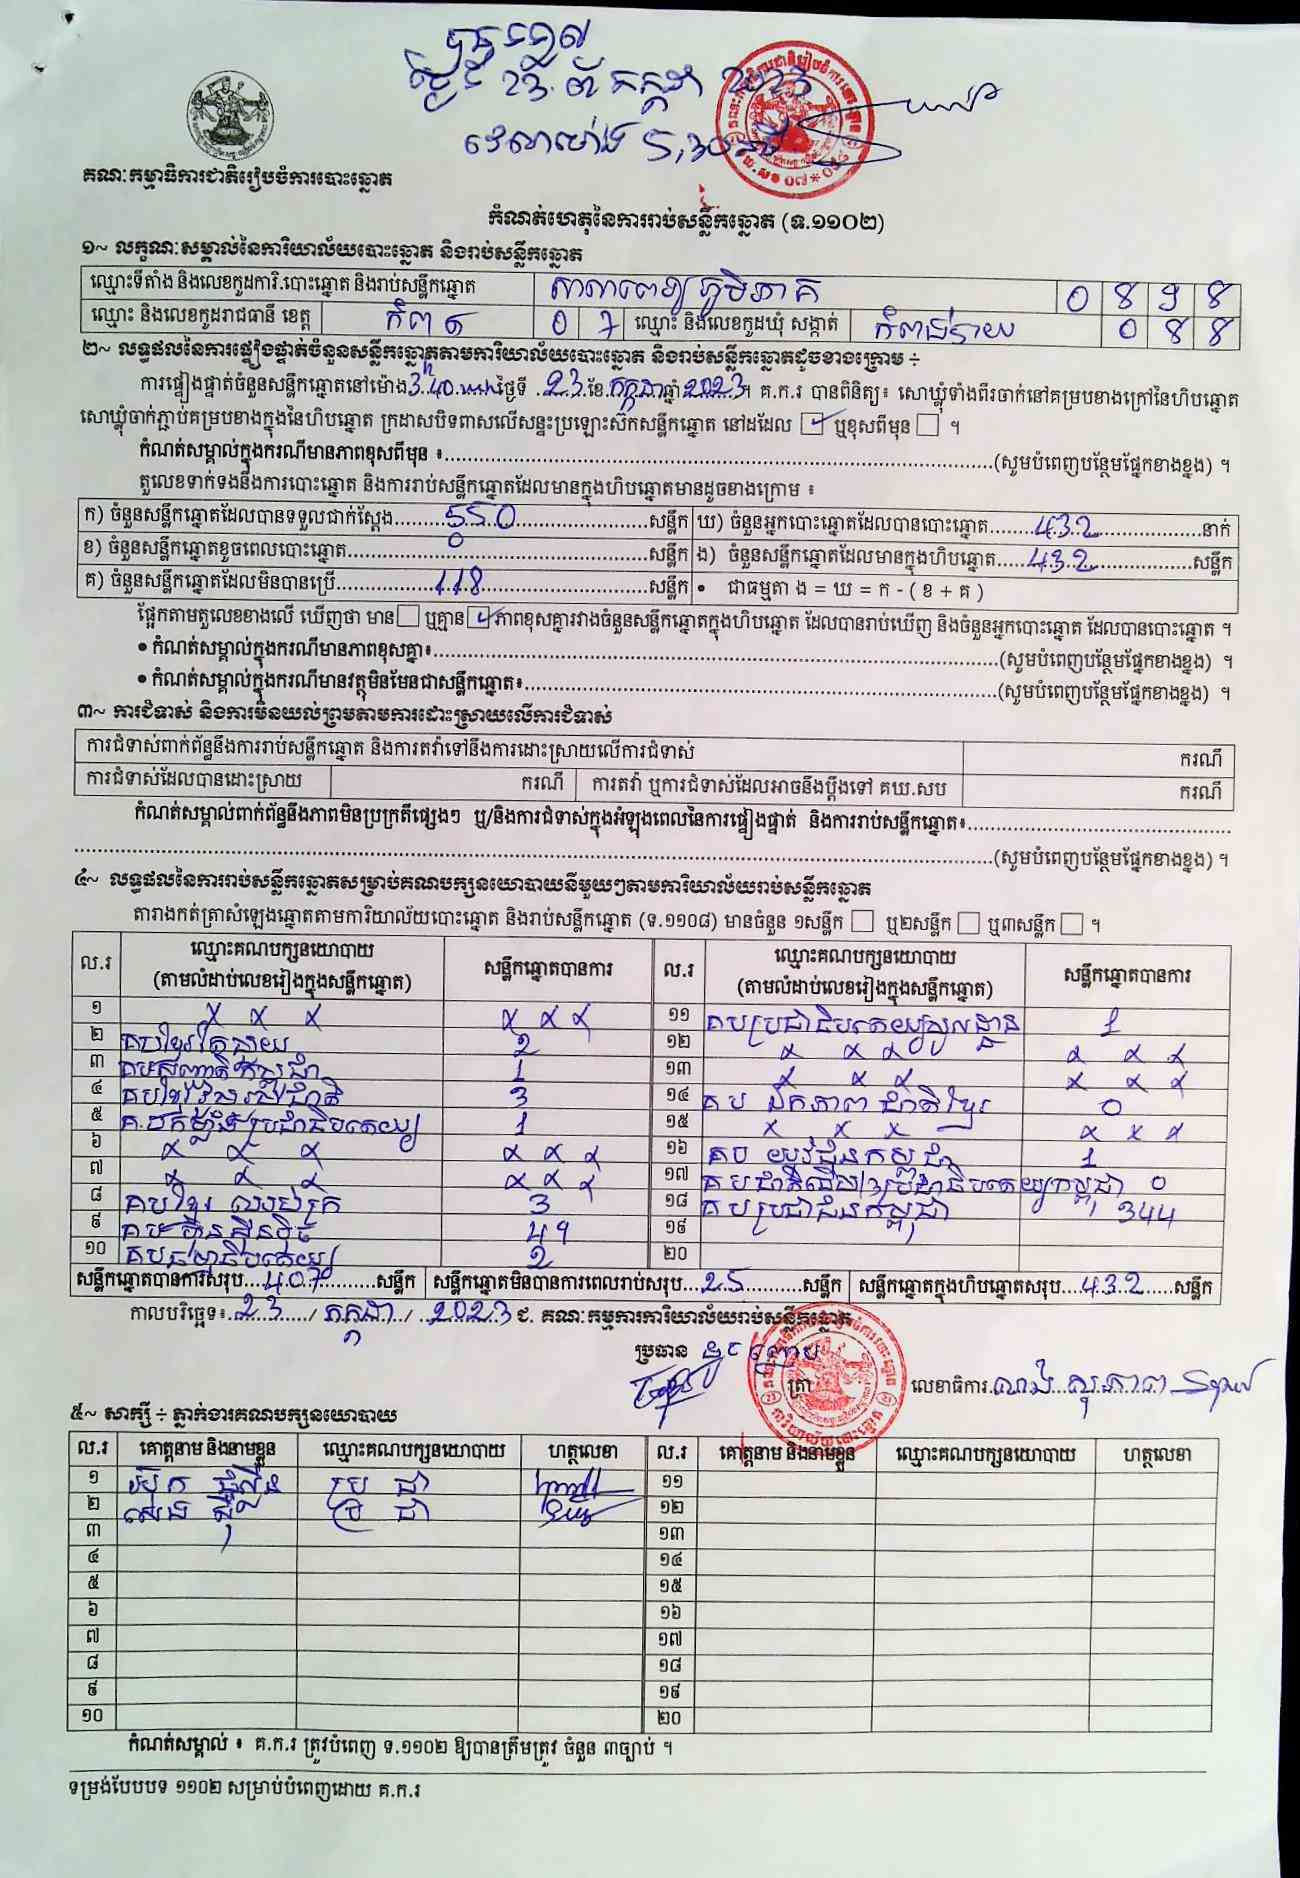 ថ្ងៃទី 23. ខែ កក្កដា 2023
វេលាម៉ោង 5,30
គណៈកម្មាធិការជាតិរៀបចំការបោះឆ្នោត
កំណត់ហេតុនៃការរាប់សន្លឹកឆ្នោត (ទ.១១០២)
១~ លក្ខណៈសម្គាល់នៃការិយាល័យបោះឆ្នោត និងរាប់សន្លឹកឆ្នោត
ឈ្មោះទីតាំង និងលេខកូដការិ.បោះឆ្នោត និងរាប់សន្លឹកឆ្នោត សាលាពេទ្យភូមិភាគ 0 8 9 8
ឈ្មោះ និងលេខកូដរាជធានី ខេត្ត កំពត 0 7 ឈ្មោះ និងលេខកូដឃុំ សង្កាត់ កំពង់បាយ 0 8 8
២~ លទ្ធផលនៃការផ្ទៀងផ្ទាត់ចំនួនសន្លឹកឆ្នោតតាមការិយាល័យបោះឆ្នោត និងរាប់សន្លឹកឆ្នោតដូចខាងក្រោម ÷
ការផ្ទៀងផ្ទាត់ចំនួនសន្លឹកឆ្នោតនៅម៉ោង 3h40 ថ្ងៃទី 23 ខែ កក្កដា ឆ្នាំ 2023 ។ គ.ក.រ បានពិនិត្យ៖ សោឃ្លុំទាំងពីរចាក់នៅគម្របខាងក្រៅនៃហិបឆ្នោត
សោឃ្លុំចាក់ភ្ជាប់គម្របខាងក្នុងនៃហិបឆ្នោត ក្រដាសបិទពាសលើសន្ទះប្រឡោះស៊កសន្លឹកឆ្នោត នៅដដែល ☑ ឬខុសពីមុន ☐ ។
កំណត់សម្គាល់ក្នុងករណីមានភាពខុសពីមុន ៖..........(សូមបំពេញបន្ថែមផ្នែកខាងខ្នង) ។
តួលេខទាក់ទងនឹងការបោះឆ្នោត និងការរាប់សន្លឹកឆ្នោតដែលមានក្នុងហិបឆ្នោតមានដូចខាងក្រោម ៖
ក) ចំនួនសន្លឹកឆ្នោតដែលបានទទួលជាក់ស្តែង 550 សន្លឹក ឃ) ចំនួនអ្នកបោះឆ្នោតដែលបានបោះឆ្នោត 432 នាក់
ខ) ចំនួនសន្លឹកឆ្នោតខូចពេលបោះឆ្នោត 0 សន្លឹក ង) ចំនួនសន្លឹកឆ្នោតដែលមានក្នុងហិបឆ្នោត 432 សន្លឹក
គ) ចំនួនសន្លឹកឆ្នោតដែលមិនបានប្រើ 118 សន្លឹក • ជាធម្មតា ង = ឃ = ក - ( ខ + គ )
ផ្អែកតាមតួលេខខាងលើ ឃើញថា មាន ☐ ឬគ្មាន ☑ ភាពខុសគ្នារវាងចំនួនសន្លឹកឆ្នោតក្នុងហិបឆ្នោត ដែលបានរាប់ឃើញ និងចំនួនអ្នកបោះឆ្នោត ដែលបានបោះឆ្នោត ។
• កំណត់សម្គាល់ក្នុងករណីមានភាពខុសគ្នា៖..........(សូមបំពេញបន្ថែមផ្នែកខាងខ្នង) ។
• កំណត់សម្គាល់ក្នុងករណីមានវត្ថុមិនមែនជាសន្លឹកឆ្នោត៖..........(សូមបំពេញបន្ថែមផ្នែកខាងខ្នង) ។
៣~ ការជំទាស់ និងការមិនយល់ព្រមតាមការដោះស្រាយលើការជំទាស់
ការជំទាស់ពាក់ព័ន្ធនឹងការរាប់សន្លឹកឆ្នោត និងការតវ៉ាទៅនឹងការដោះស្រាយលើការជំទាស់ ករណី
ការជំទាស់ដែលបានដោះស្រាយ ករណី ការតវ៉ា ឬការជំទាស់ដែលអាចនឹងប្តឹងទៅ គឃ.សប ករណី
កំណត់សម្គាល់ពាក់ព័ន្ធនឹងភាពមិនប្រក្រតីផ្សេងៗ ឬ/និងការជំទាស់ក្នុងអំឡុងពេលនៃការផ្ទៀងផ្ទាត់ និងការរាប់សន្លឹកឆ្នោត៖..........
..........(សូមបំពេញបន្ថែមផ្នែកខាងខ្នង) ។
៤~ លទ្ធផលនៃការរាប់សន្លឹកឆ្នោតសម្រាប់គណបក្សនយោបាយនីមួយៗតាមការិយាល័យរាប់សន្លឹកឆ្នោត
តារាងកត់ត្រាសំឡេងឆ្នោតតាមការិយាល័យបោះឆ្នោត និងរាប់សន្លឹកឆ្នោត (ទ.១១០៨) មានចំនួន ១សន្លឹក ☐ ឬ២សន្លឹក ☐ ឬ៣សន្លឹក ☐ ។
ល.រ ឈ្មោះគណបក្សនយោបាយ (តាមលំដាប់លេខរៀងក្នុងសន្លឹកឆ្នោត) សន្លឹកឆ្នោតបានការ ល.រ ឈ្មោះគណបក្សនយោបាយ (តាមលំដាប់លេខរៀងក្នុងសន្លឹកឆ្នោត) សន្លឹកឆ្នោតបានការ
១ x x x x x x ១១ គបប្រជាធិបតេយ្យមូលដ្ឋាន 1
២ គបខ្មែរតែមួយ 2 ១២ x x x x x x
៣ គបសញ្ជាតិកម្ពុជា 1 ១៣ x x x x x x
៤ គបខ្មែររួបរួមជាតិ 3 ១៤ គប ឯកភាពជាតិខ្មែរ 0
៥ គ.ដក់ម្លាំងប្រជាធិបតេយ្យ 1 ១៥ x x x x x x
៦ x x x x x x ១៦ គប យុវជនកម្ពុជា 1
៧ x x x x x x ១៧ គបជាតិដើម្បីប្រជាធិបតេយ្យកម្ពុជា 0
៨ គបខ្មែរ 3 ១៨ គបប្រជាជនកម្ពុជា 344
៩ គបហ៊្វុនស៊ិនប៉ិច 49 ១៩
១០ គបធម្មាធិបតេយ្យ 2 ២០
សន្លឹកឆ្នោតបានការសរុប 407 សន្លឹក សន្លឹកឆ្នោតមិនបានការពេលរាប់សរុប 25 សន្លឹក សន្លឹកឆ្នោតក្នុងហិបឆ្នោតសរុប 432 សន្លឹក
កាលបរិច្ឆេទ៖ 23 / កក្កដា / 2023 ជ. គណៈកម្មការការិយាល័យរាប់សន្លឹកឆ្នោត
ប្រធាន ត្រា លេខាធិការ. សុភាព
៥~ សាក្សី ÷ ភ្នាក់ងារគណបក្សនយោបាយ
ល.រ គោត្តនាម និងនាមខ្លួន ឈ្មោះគណបក្សនយោបាយ ហត្ថលេខា ល.រ គោត្តនាម និងនាមខ្លួន ឈ្មោះគណបក្សនយោបាយ ហត្ថលេខា
១ ប្រ ជា ១១
២ ប្រ ជា ១២
៣ ១៣
៤ ១៤
៥ ១៥
៦ ១៦
៧ ១៧
៨ ១៨
៩ ១៩
១០ ២០
កំណត់សម្គាល់ ៖ គ.ក.រ ត្រូវបំពេញ ទ.១១០២ ឱ្យបានត្រឹមត្រូវ ចំនួន ៣ច្បាប់ ។
ទម្រង់បែបបទ ១១០២ សម្រាប់បំពេញដោយ គ.ក.រ